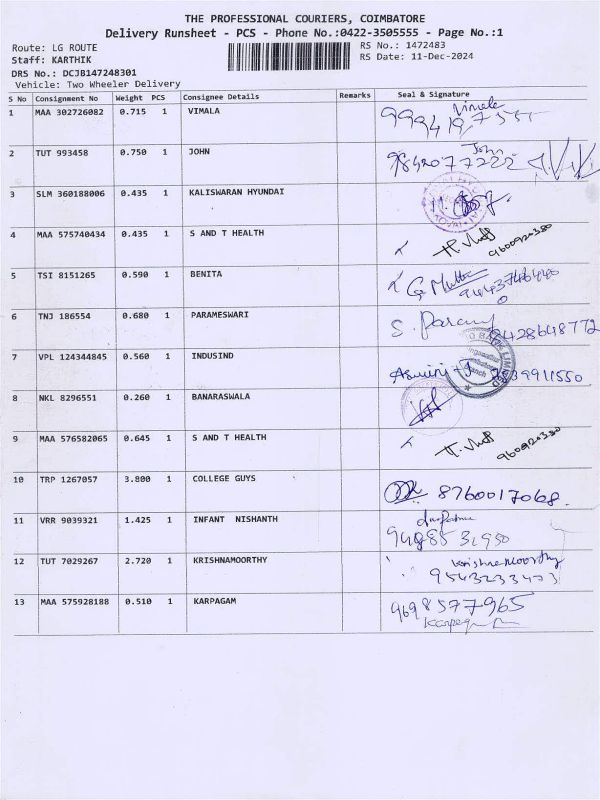 THE PROFESSIONAL COURIERS, COIMBATORE
Delivery Runsheet - PCS - Phone No.:0422-3505555 - Page No.:1
Route: LG ROUTE RS No.: 1472483
Staff: KARTHIK RS Date: 11-Dec-2024
DRS No.: DCJB147248301
Vehicle: Two Wheeler Delivery
S No Consignment No Weight PCS Consignee Details Remarks Seal & Signature
1 MAA 302726082 0.715 1 VIMALA Vimala
2 TUT 993458 0.750 1 JOHN John
9842077222
3 SLM 360188006 0.435 1 KALISWARAN HYUNDAI
4 MAA 575740434 0.435 1 S AND T HEALTH
9600920380
5 TSI 8151265 0.590 1 BENITA
6 TNJ 186554 0.680 1 PARAMESWARI
9428648772
7 VPL 124344845 0.560 1 INDUSIND
8 NKL 8296551 0.260 1 BANARASWALA
9 MAA 576582065 0.645 1 S AND T HEALTH
10 TRP 1267057 3.800 1 COLLEGE GUYS 8760017068.
11 VRR 9039321 1.425 1 INFANT NISHANTH
12 TUT 7029267 2.720 1 KRISHNAMOORTHY Krishnamoorthy
13 MAA 575928188 0.510 1 KARPAGAM 9698577965